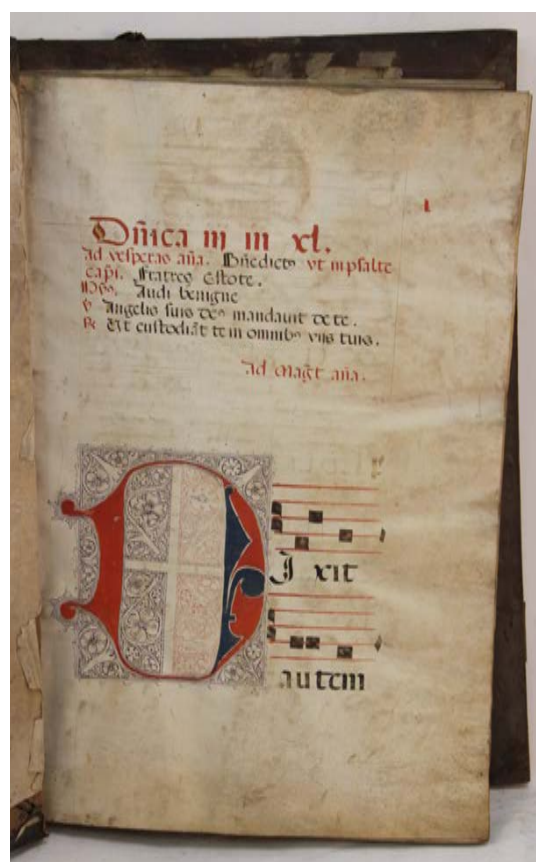 1
Dñica iij in xl.
ad vesperas aña. Bñedictꝰ vt in psalte
Capi. Fratres Estote.
Hỹs. Audi benigne
℣ Angelis suis deꝰ mandauit de te.
℟ Et custodiãt te in omnibꝰ viis tuis.
ad Magt̃ aña.
D I xit
autem